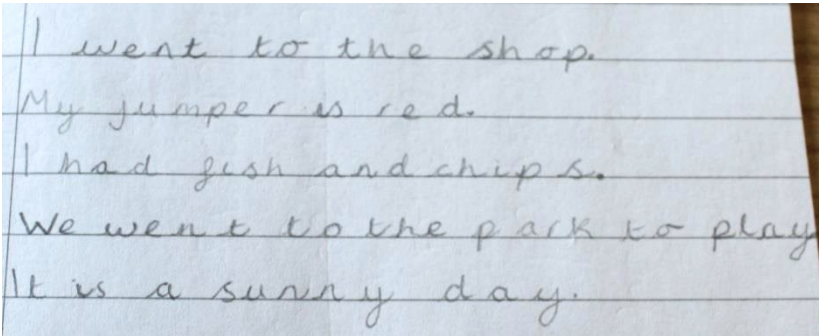 I went to the shop.
My jumper is red.
I had fish and chips.
We went to the park to play
It is a sunny day.